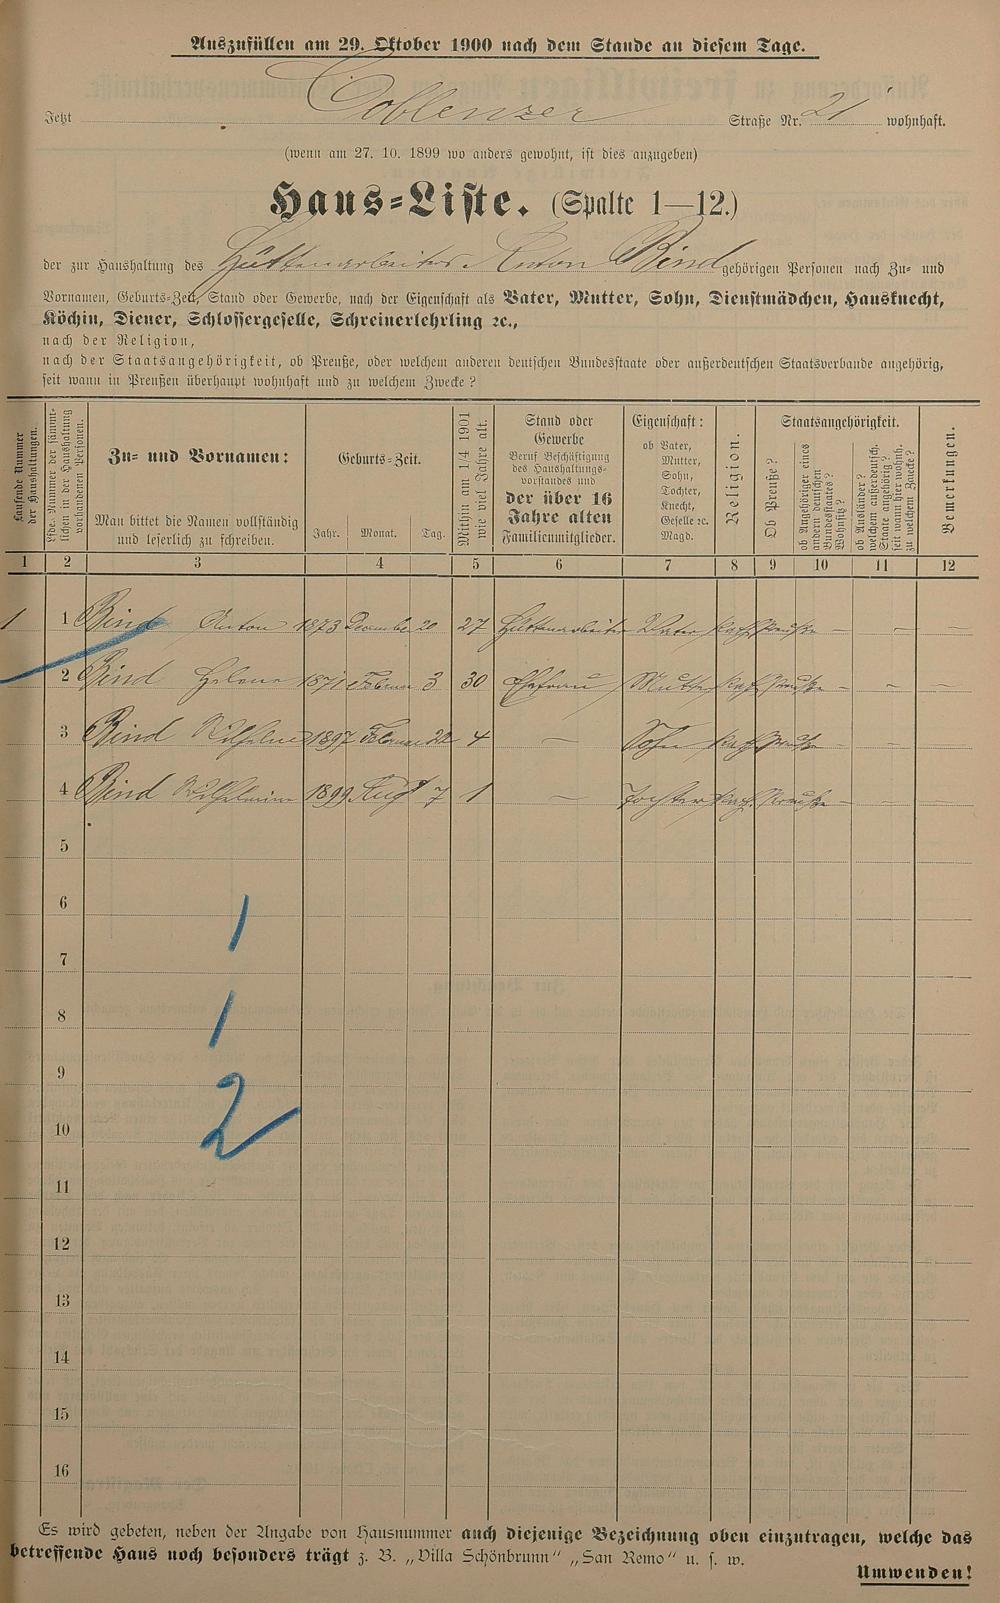 Auszufüllen am 29. Oktober 1900 nach dem Stande an diesem Tage.
Jetzt Coblenzer Straße Nr. 21 wohnhaft.
(wenn am 27. 10. 1899 wo anders gewohnt, ist dies anzugeben)
Haus-Liste. (Spalte 1—12.)
der zur Haushaltung des Hüttenarbeiters Anton Bind gehörigen Personen nach Zu- und
Vornamen, Geburts-Zeit, Stand oder Gewerbe, nach der Eigenschaft als Vater, Mutter, Sohn, Dienstmädchen, Hausknecht,
Köchin, Diener, Schlossergeselle, Schreinerlehrling ꝛc.,
nach der Religion,
nach der Staatsangehörigkeit, ob Preuße, oder welchem anderen deutschen Bundesstaate oder außerdeutschen Staatsverbande angehörig,
seit wann in Preußen überhaupt wohnhaft und zu welchem Zwecke?
Laufende Nummer der Haushaltungen.
Lfde. Nummer der sämmtlichen in der Haushaltung vorhandenen Personen.
Zu- und Vornamen:
Man bittet die Namen vollständig
und leserlich zu schreiben.
Geburts-Zeit.
Jahr. Monat. Tag.
Mithin am 1/4 1901 wie viel Jahre alt.
Stand oder
Gewerbe
Beruf Beschäftigung
des Haushaltungs-
vorstandes und
der über 16
Jahre alten
Familienmitglieder.
Eigenschaft:
ob Vater,
Mutter,
Sohn,
Tochter,
Knecht,
Geselle ꝛc.
Magd.
Religion.
Staatsangehörigkeit.
Ob Preuße?
ob Angehöriger eines andern deutschen Bundesstaates? Wohnsitz?
ob Ausländer? welchem außerdeutsch. Staate angehörig? seit wann hier wohnh. zu welchem Zwecke?
Bemerkungen.
1 2 3 4 5 6 7 8 9 10 11 12
1 1 Bind Anton 1873 December 20 27 Hüttenarbeiter Vater kath. Preuße — —
2 Bind Helene 1871 Februar 3 30 Ehefrau Mutter kath. Preuße — — —
3 Bind Wilhelm 1897 Februar 22 4 — Sohn kath. Preuße — — —
4 Bind Wilhelmine 1899 Aug 7 1 — Tochter kath. Preuße — — —
5
6
1
7
8
1
9
2
10
11
12
13
14
15
16
Es wird gebeten, neben der Angabe von Hausnummer auch diejenige Bezeichnung oben einzutragen, welche das
betreffende Haus noch besonders trägt z. B. „Villa Schönbrunn" „San Remo" u. s. w.
Umwenden!